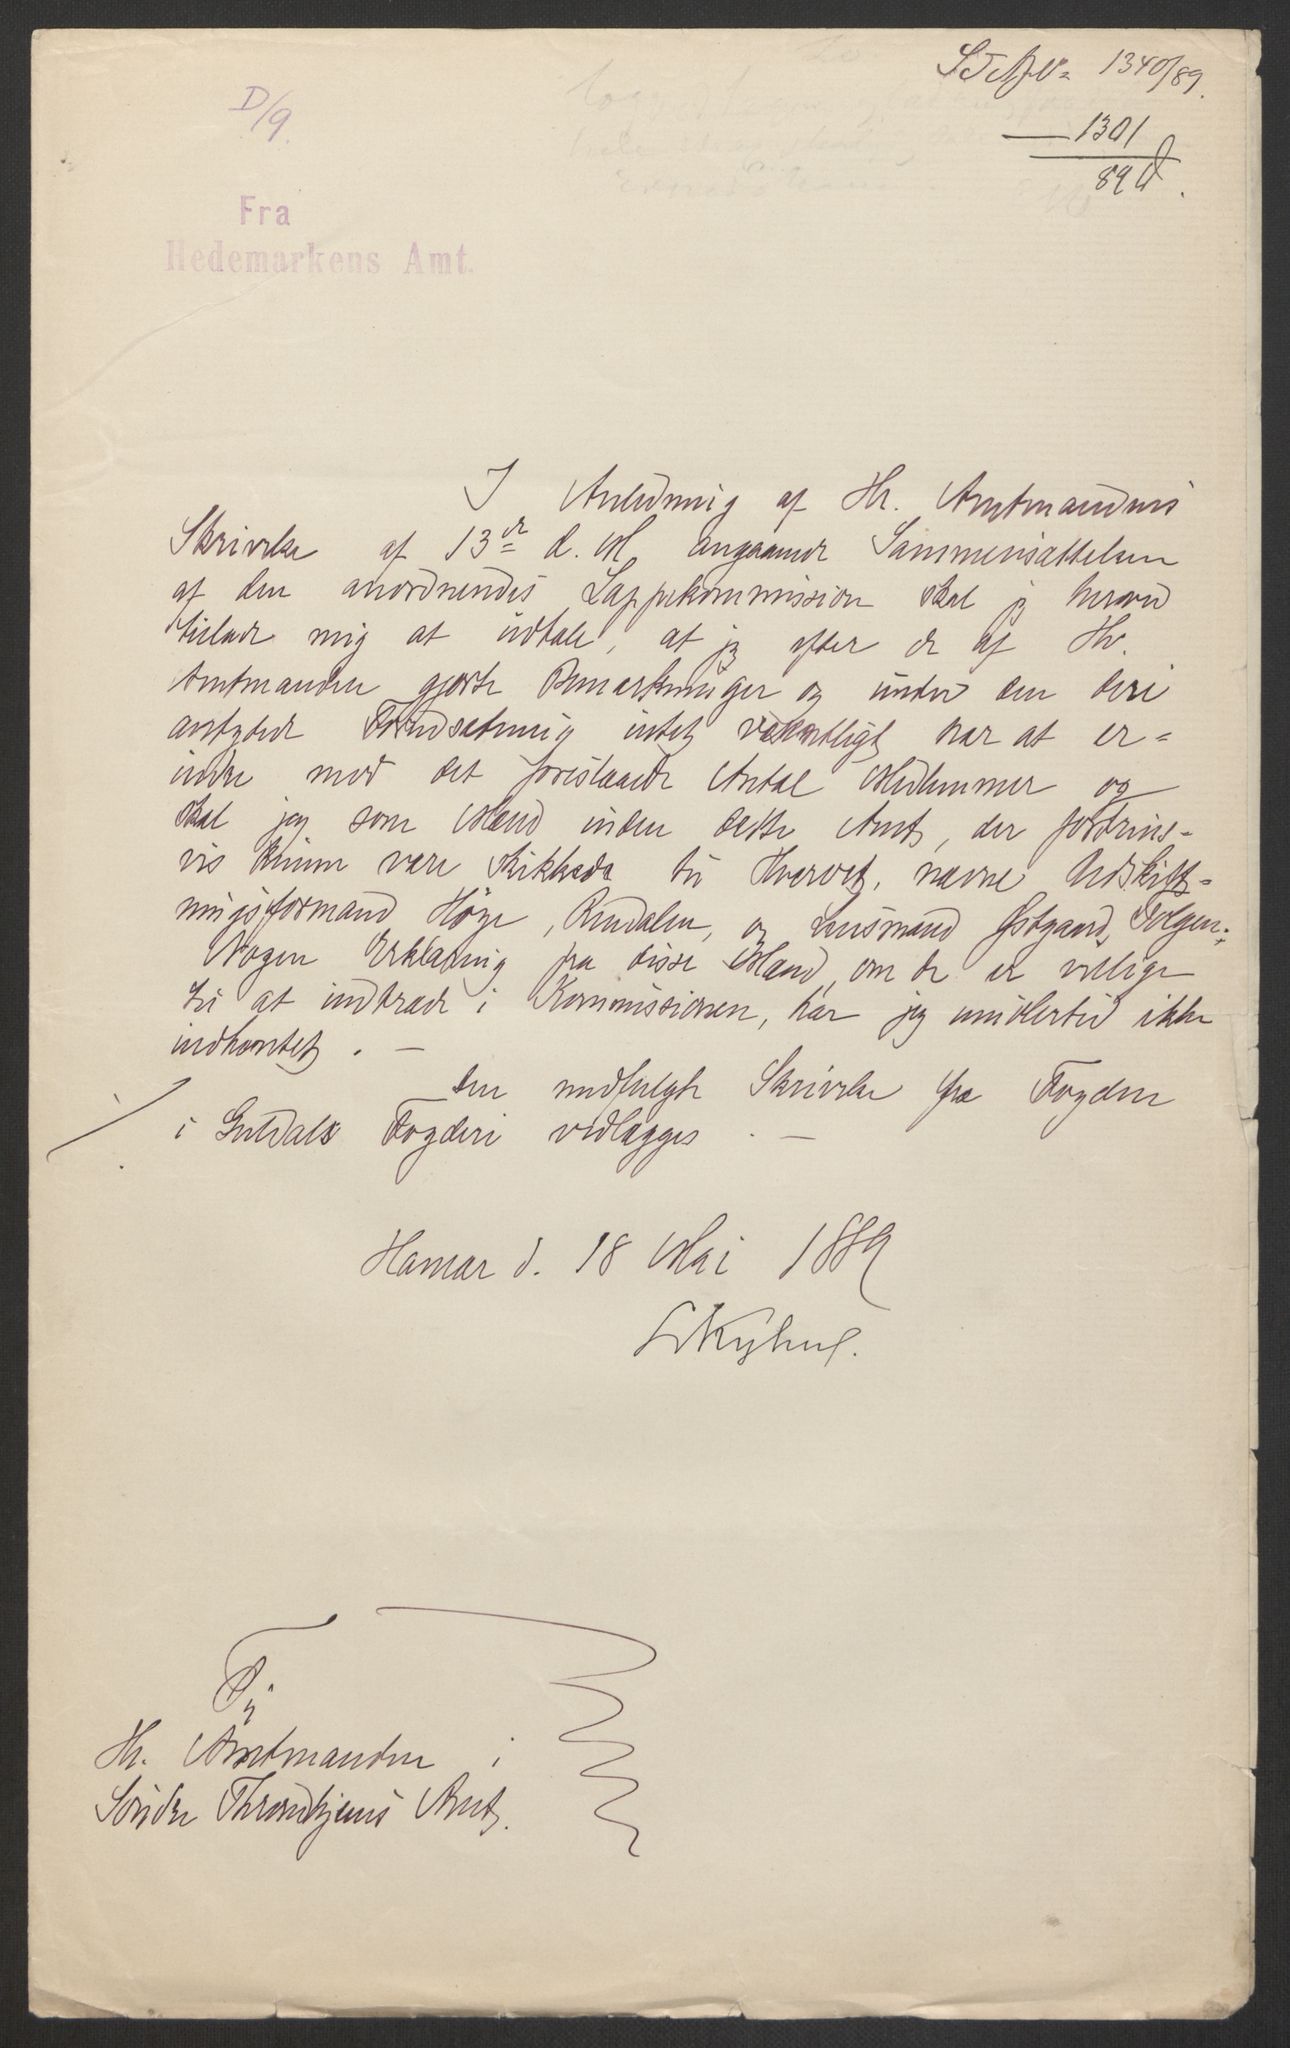 STAJN= 1340/89.
— 1301
89 A.
D/9.
Fra
Hedemarkens Amt.
I Anledning af Hr. Amtmandens
Skrivelse af 13de d. M. angaaende Sammensættelsen
af den anordnendes Lappekommission skal jeg herved
tillade mig at udtale, at jeg efter de af Hr.
Amtmanden gjorte Bemærkninger og under den deri
antydede Forudsætning intet væsentligt har at er=
indre mod det foreslaaede Antal Medlemmer og
skal jeg som Mænd inden dette Amt, der fortrins-
vis kunne være skikkede til Hvervet, nævne Udskift=
ningsformand Høye, Rendalen, og Lensmand Østgaard, Tolgen.
Nogen Erklæring fra disse Mænd, om de er villige
til at indtræde i Kommissionen, har jeg imidlertid ikke
indhentet. —
Den medfulgte Skrivelse fra Fogden
i Guldals Fogderi vedlægges. —
Hamar d. 18 Mai 1889
Til
Hr. Amtmanden i
Søndre Throndhjems Amt.